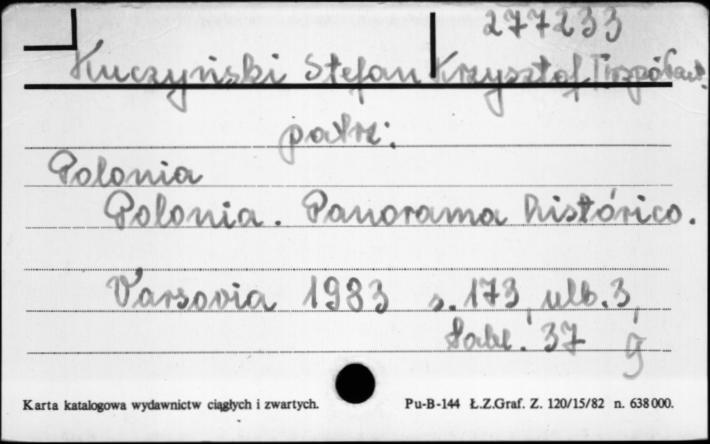 277233
Kuczyński Stefan Krzysztof [współaut.
patrz:
Polonia
Polonia. Panorama histórico.
Varsovia 1983 s. 173, ulb. 3,
tabl. 37 g
Karta katalogowa wydawnictw ciągłych i zwartych. Pu-B-144 Ł.Z.Graf. Z. 120/15/82 n. 638000.